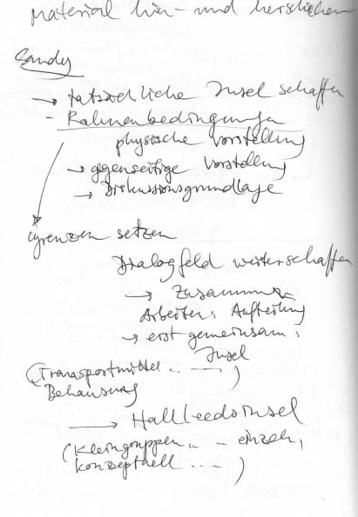 Material hin- und herschieben
Sandy
→ tatsächliche Insel schaffen
- Rahmenbedingungen
physische Vorstellung
→ gegenseitige Vorstellung
→ Diskussionsgrundlage
Grenzen setzen
Dialogfeld weiterschaffen
→ Zusammen
Arbeiten: Aufteilung
→ erst gemeinsam:
Insel
(Transportmittel ... )
Behausung
→
(Kleingruppen .. - einzeln,
konzeptuell ... )